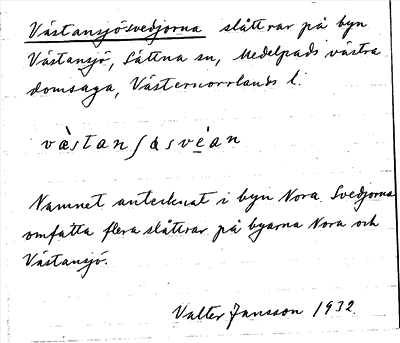 Västansjösvedjorna slåttrar på byn
Västansjö, Sättna sn, Medelpads västra
domsaga, Västernorrlands l.
västanʃɑsvéan
Namnet antecknat i byn Nora. Svedjorna
omfatta flera slåttrar på byarna Nora och
Västansjö.
Valter Jansson 1932.